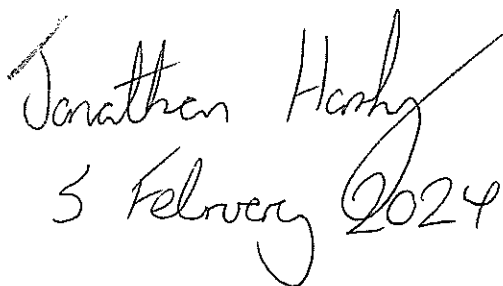 Jonathan
5 February 2024